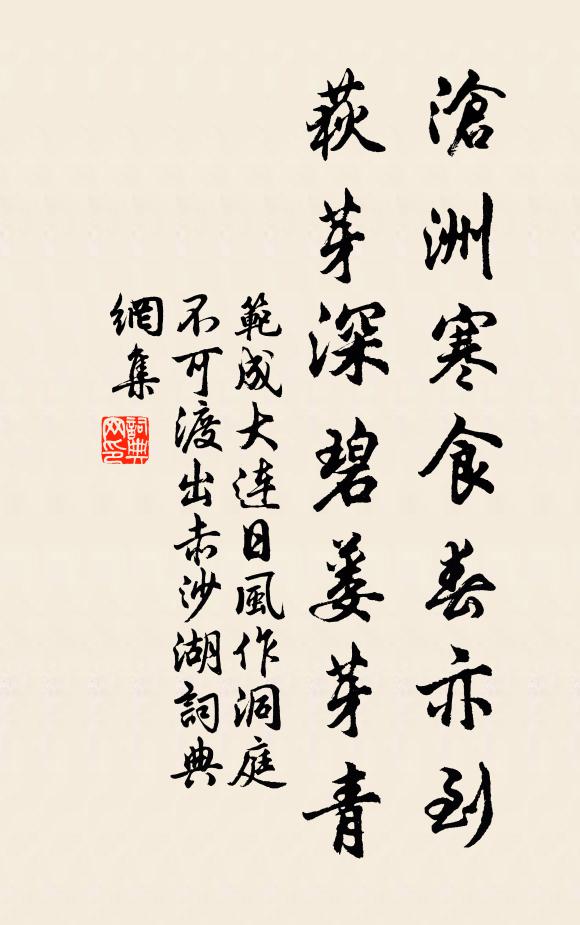 滄洲寒食春亦到
荻芽深碧蔞芽青
範成大連日風作洞庭
不可渡出赤沙湖詞典
網集
詞典
网印